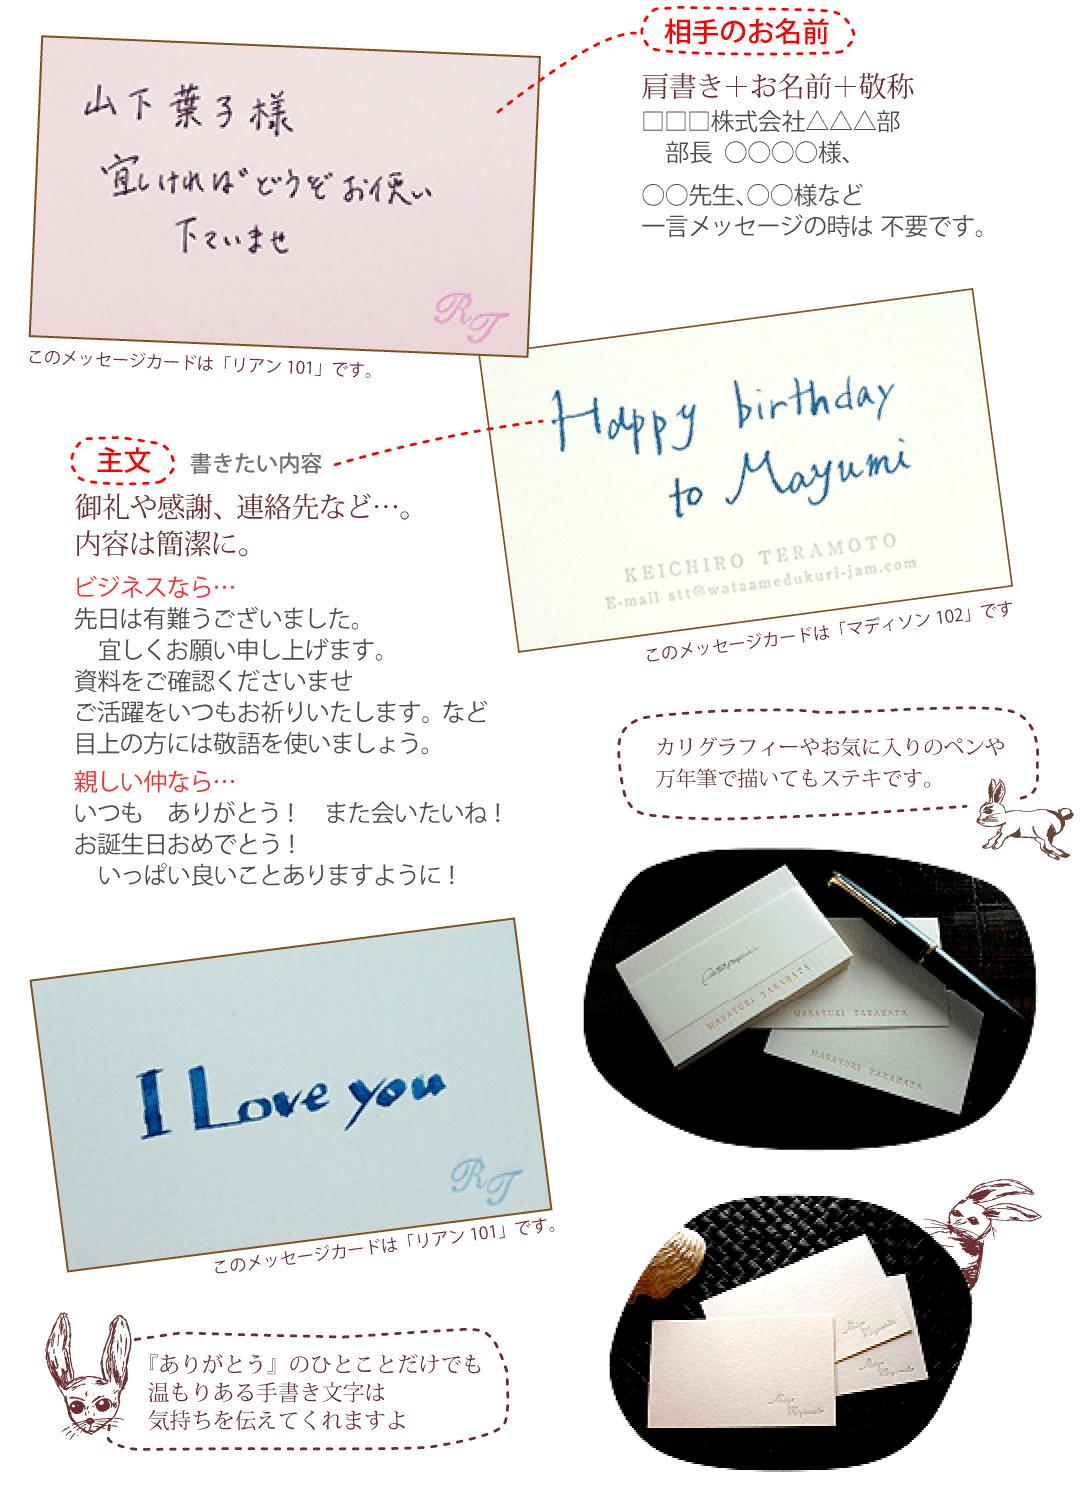 相手のお名前
肩書き＋お名前＋敬称
□□□株式会社△△△部
部長 〇〇〇〇様、
〇〇先生、〇〇様など
一言メッセージの時は 不要です。
山下葉子様
宜しければどうぞお使い
下さいませ
RT
このメッセージカードは「リアン 101」です。
Happy birthday
to Mayumi
KEICHIRO TERAMOTO
E-mail stt@wataamedukuri-jam.com
このメッセージカードは「マディソン 102」です
主文 書きたい内容
御礼や感謝、連絡先など…。
内容は簡潔に。
ビジネスなら…
先日は有難うございました。
宜しくお願い申し上げます。
資料をご確認くださいませ
ご活躍をいつもお祈りいたします。など
目上の方には敬語を使いましょう。
親しい仲なら…
いつも　ありがとう！　また会いたいね！
お誕生日おめでとう！
いっぱい良いことありますように！
カリグラフィーやお気に入りのペンや
万年筆で描いてもステキです。
MASAYUKI TAKAHATA
MASAYUKI TAKAHATA
MASAYUKI TAKAHATA
I Love you
RT
このメッセージカードは「リアン 101」です。
『ありがとう』のひとことだけでも
温もりある手書き文字は
気持ちを伝えてくれますよ